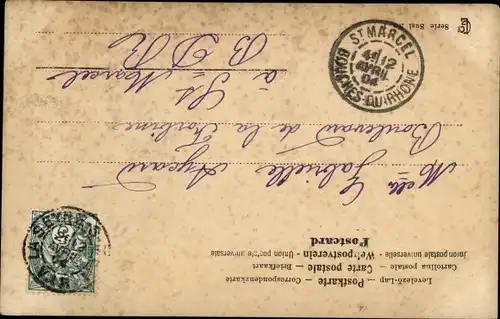 Postkarte - Correspondenzkarte
Levelező-Lap
Carte postale - Briefkaart
Cartolina postale
Weltpostverein - Union postale universale
Union postale universelle
Postcard
Serie
Melle Gabrielle Aycard
Boulevard de la
à St Marcel
B D R
ST MARCEL
BOUCHES-DU-RHONE
12
AVRIL
04
LA SEYNE
VAR